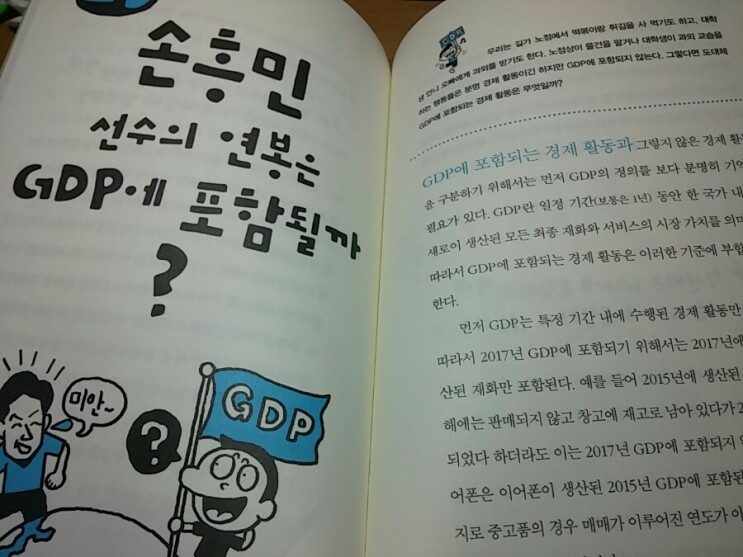 손흥민
선수의 연봉은
GDP에 포함될까
?
미안~
?
GDP
GDP
우리는 길가 노점에서 떡볶이랑 튀김을 사 먹기도 하고, 대학
생 언니 오빠에게 과외를 받기도 한다. 노점상이 물건을 팔거나 대학생이 과외 교습을
하는 행동들은 분명 경제 활동이긴 하지만 GDP에 포함되지 않는다. 그렇다면 도대체
GDP에 포함되는 경제 활동은 무엇일까?
GDP에 포함되는 경제 활동과 그렇지 않은 경제 활동
을 구분하기 위해서는 먼저 GDP의 정의를 보다 분명히 기억
필요가 있다. GDP란 일정 기간(보통은 1년) 동안 한 국가 내
새로이 생산된 모든 최종 재화와 서비스의 시장 가치를 의미
따라서 GDP에 포함되는 경제 활동은 이러한 기준에 부합
한다.
먼저 GDP는 특정 기간 내에 수행된 경제 활동만
따라서 2017년 GDP에 포함되기 위해서는 2017년에
산된 재화만 포함된다. 예를 들어 2015년에 생산된
해에는 판매되지 않고 창고에 재고로 남아 있다가 2
되었다 하더라도 이는 2017년 GDP에 포함되지 않
어폰은 이어폰이 생산된 2015년 GDP에 포함된
지로 중고품의 경우 매매가 이루어진 연도가 아